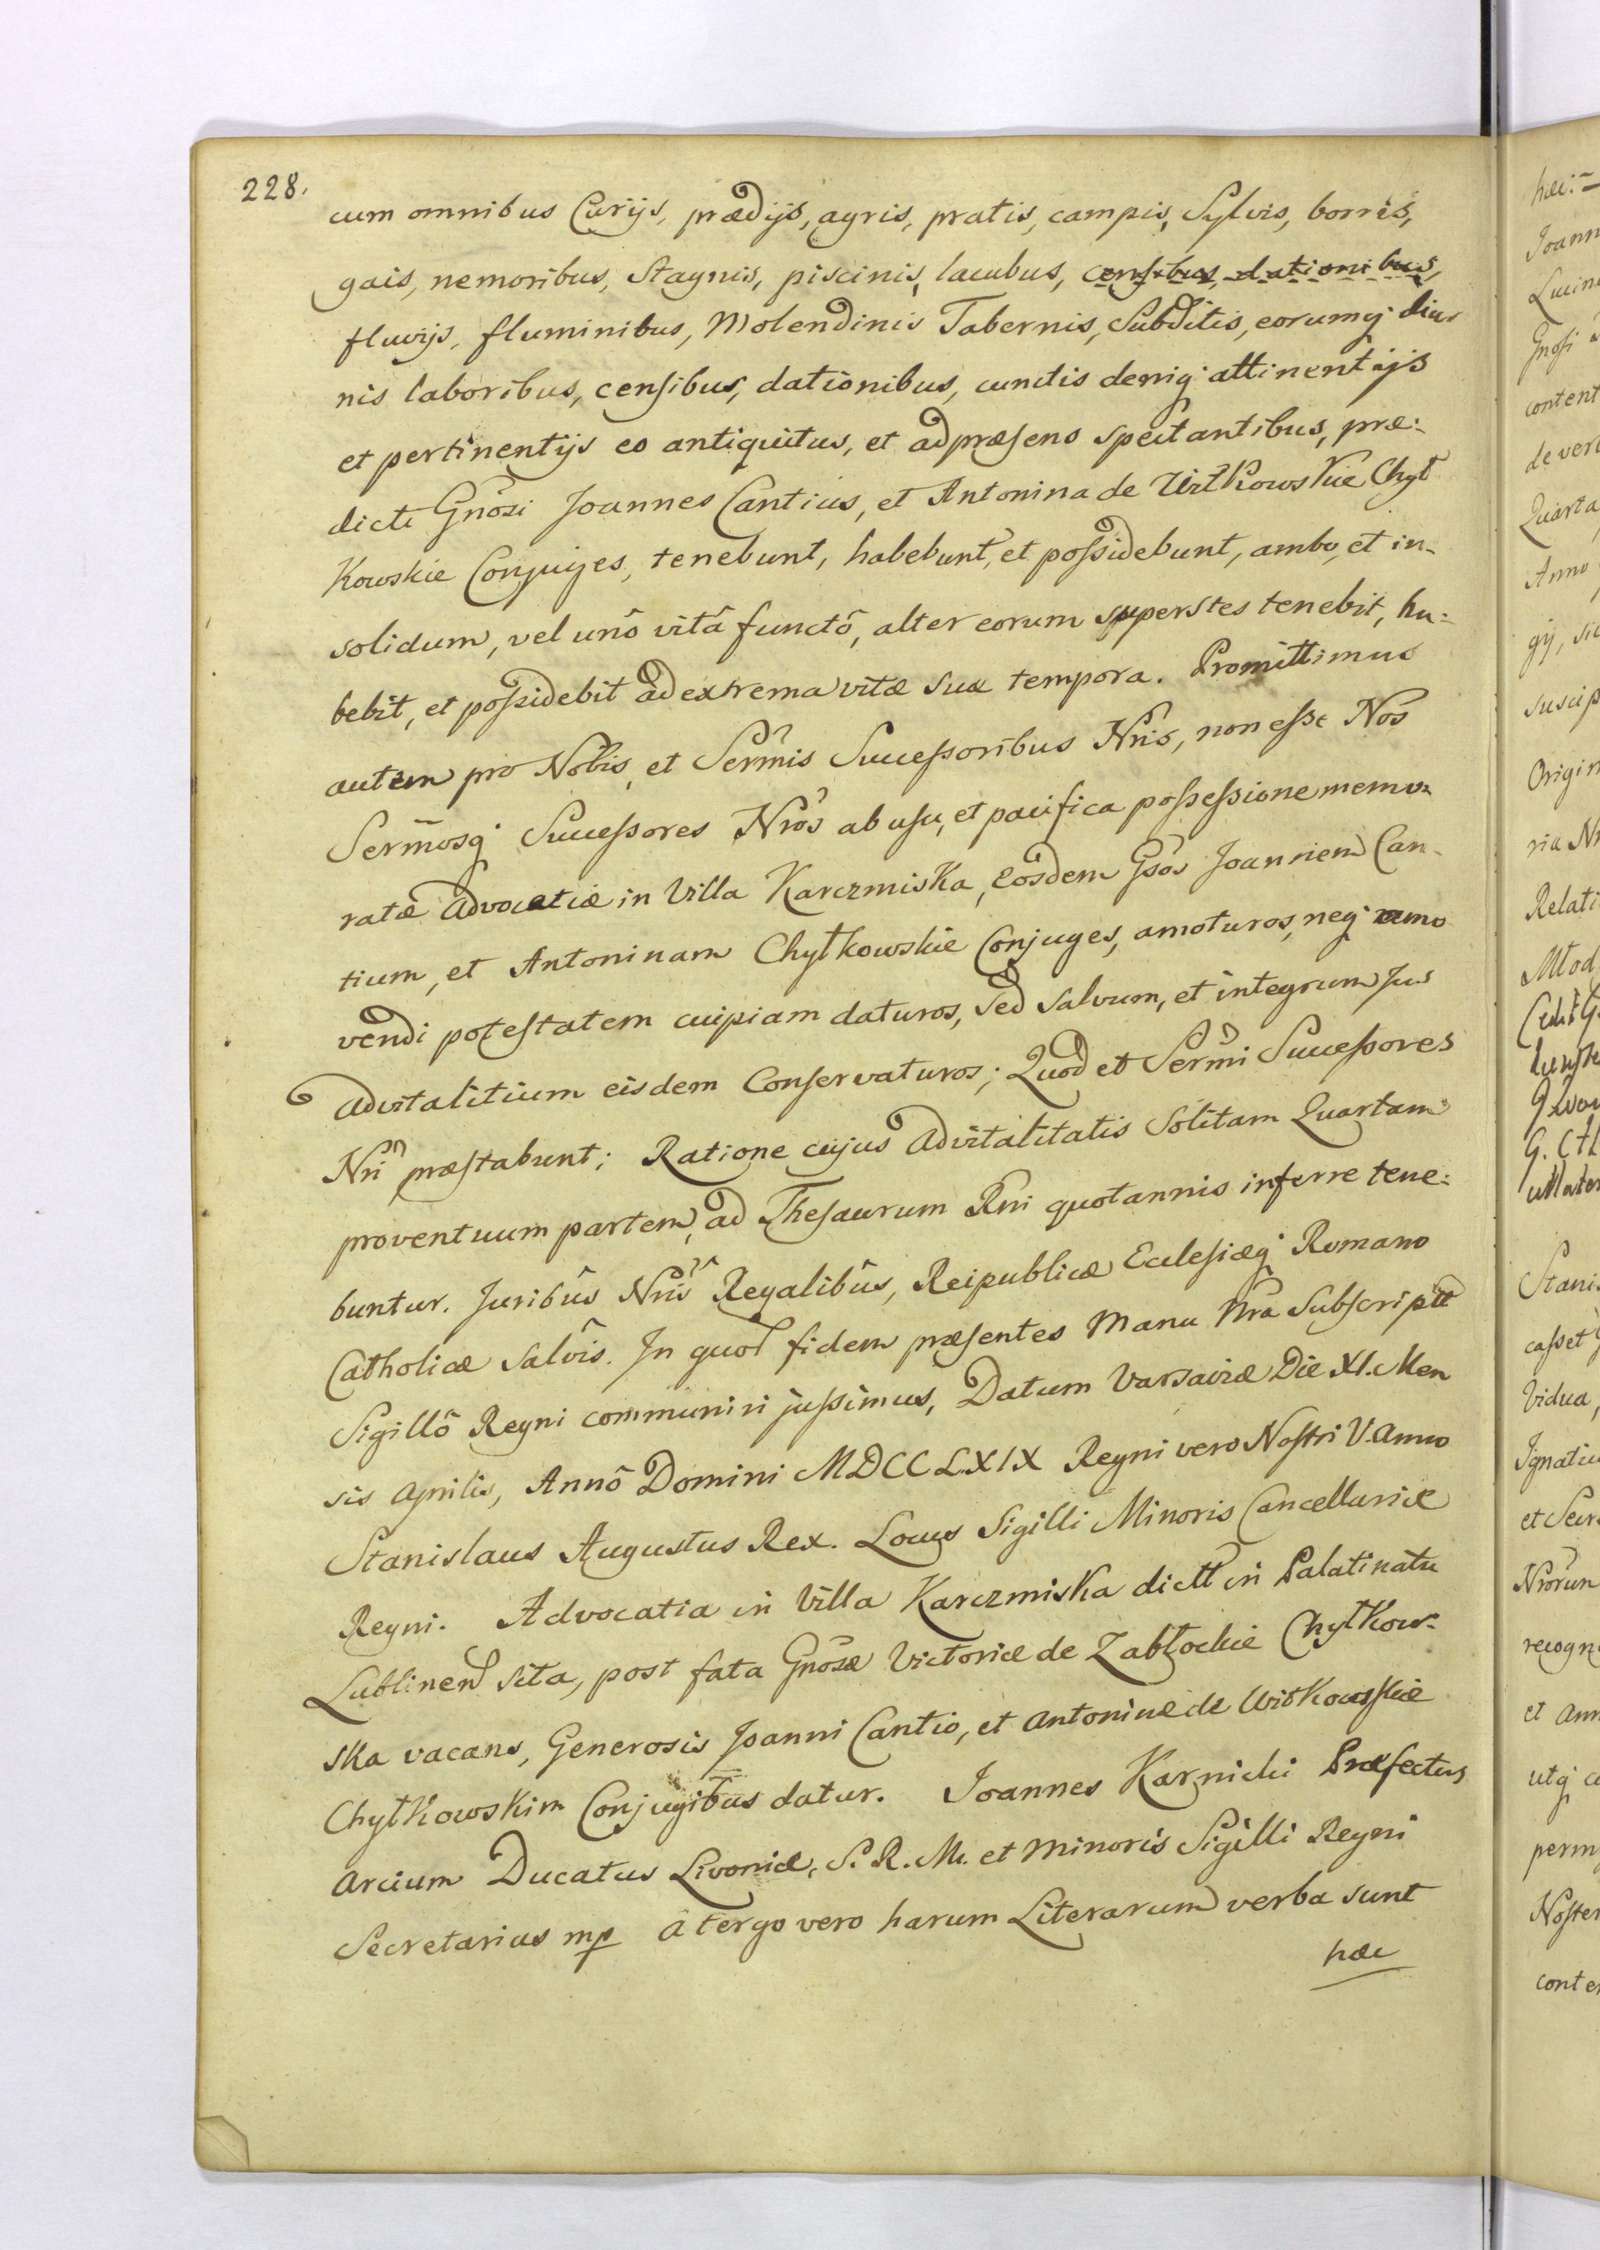 228.
cum omnibus Curijs, prædijs, agris, pratis, campis, Sylvis, borris,
gais, nemoribus, Stagnis, piscinis, lacubus, censibus, dationibus,
fluvijs, fluminibus, Molendinis Tabernis, Subditis, eorumq̃ diur
nis laboribus, censibus, dationibus, cunctis deniq̃ attinentijs
et pertinentijs eo antiquitus, et ad præsens spectantibus, præ:
dicti Gñosi Joannes Cantius, et Antonina de Witkowskie Chył
Kowskie Conjuges, tenebunt, habebunt, et possidebunt, ambo, et in-
solidum, vel unô vitâ functô, alter eorum superstes tenebit, ha-
bebit, et possidebit ad extrema vitæ suæ tempora. Promittimus
autem pro Nobis, et Serm̃is Successoribus Nr̃is, non esse Nos
Serm̃osq̃ Successores Nr̃os ab usu, et pacifica possessione memo-
ratæ Advocatiæ in Villa Karczmiska, Eosdem Gsos Joannem Can-
tium, et Antoninam Chyłkowskie Conjuges, amoturos, neq̃ amo
vendi potestatem cuipiam daturos, sed salvum, et integrum Jus
Advitalitium eisdem Conservaturos; Quod et Serm̃i Successores
Nr̃i præstabunt; Ratione cujus Advitalitatis Solitam Quartam
proventuum partem, ad Thesaurum Rñi quotannis inferre tene:
buntur. Juribûs Nr̃is Regalibûs, Reipublicæ Ecclesiæq̃ Romano
Catholicæ salvîs. In quor̃ fidem præsentes Manu Nr̃a Subscriptt
Sigillô Regni communiri jussimus, Datum Varsaviæ Die XI. Men
sis Aprilis, Annô Domini MDCCLXIX Regni vero Nostri V. Anno
Stanislaus Augustus Rex. Locus Sigilli Minoris Cancellariæ
Regni. Advocatia in Villa Karczmiska dictt in Palatinatu
Lublinen̄ sita, post fata Gñosæ Victoriæ de Zabłockie Chyłkow-
ska vacans, Generosis Joanni Cantio, et Antoninæ de Witkowskie
Chyłkowskim Conjugibus datur. Joannes Karnicki Præfectus
Arcium Ducatus Livoniæ, S. R. M. et Minoris Sigilli Regni
Secretarius mp A tergo vero harum Literarum verba sunt
hæc
hæc: -
Joann
Lucin
Gñosi
content
de ver
Quarta
Anno
gij, sic
suscip
Origin
ria Nr
Relati
Młod
Stani
casset
Vidua,
Ignatiu
et Secr
Nr̃orum
recogn
et Ann
utq̃
perm
Noster
conte